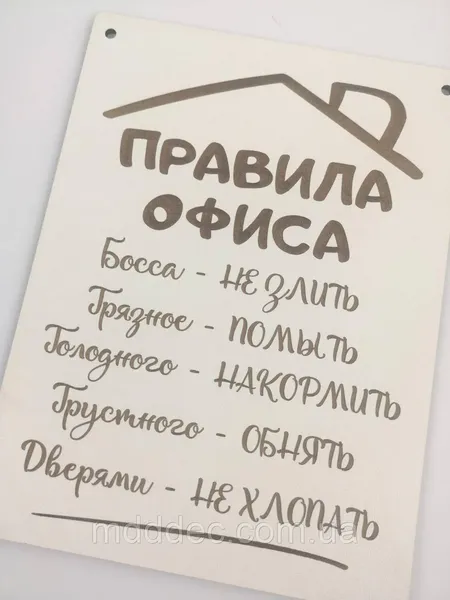 ПРАВИЛА
ОФИСА
Босса - НЕ ЗЛИТЬ
Грязное - ПОМЫТЬ
Голодного - НАКОРМИТЬ
Грустного - ОБНЯТЬ
Дверями - НЕ ХЛОПАТЬ
mdddec.com.ua